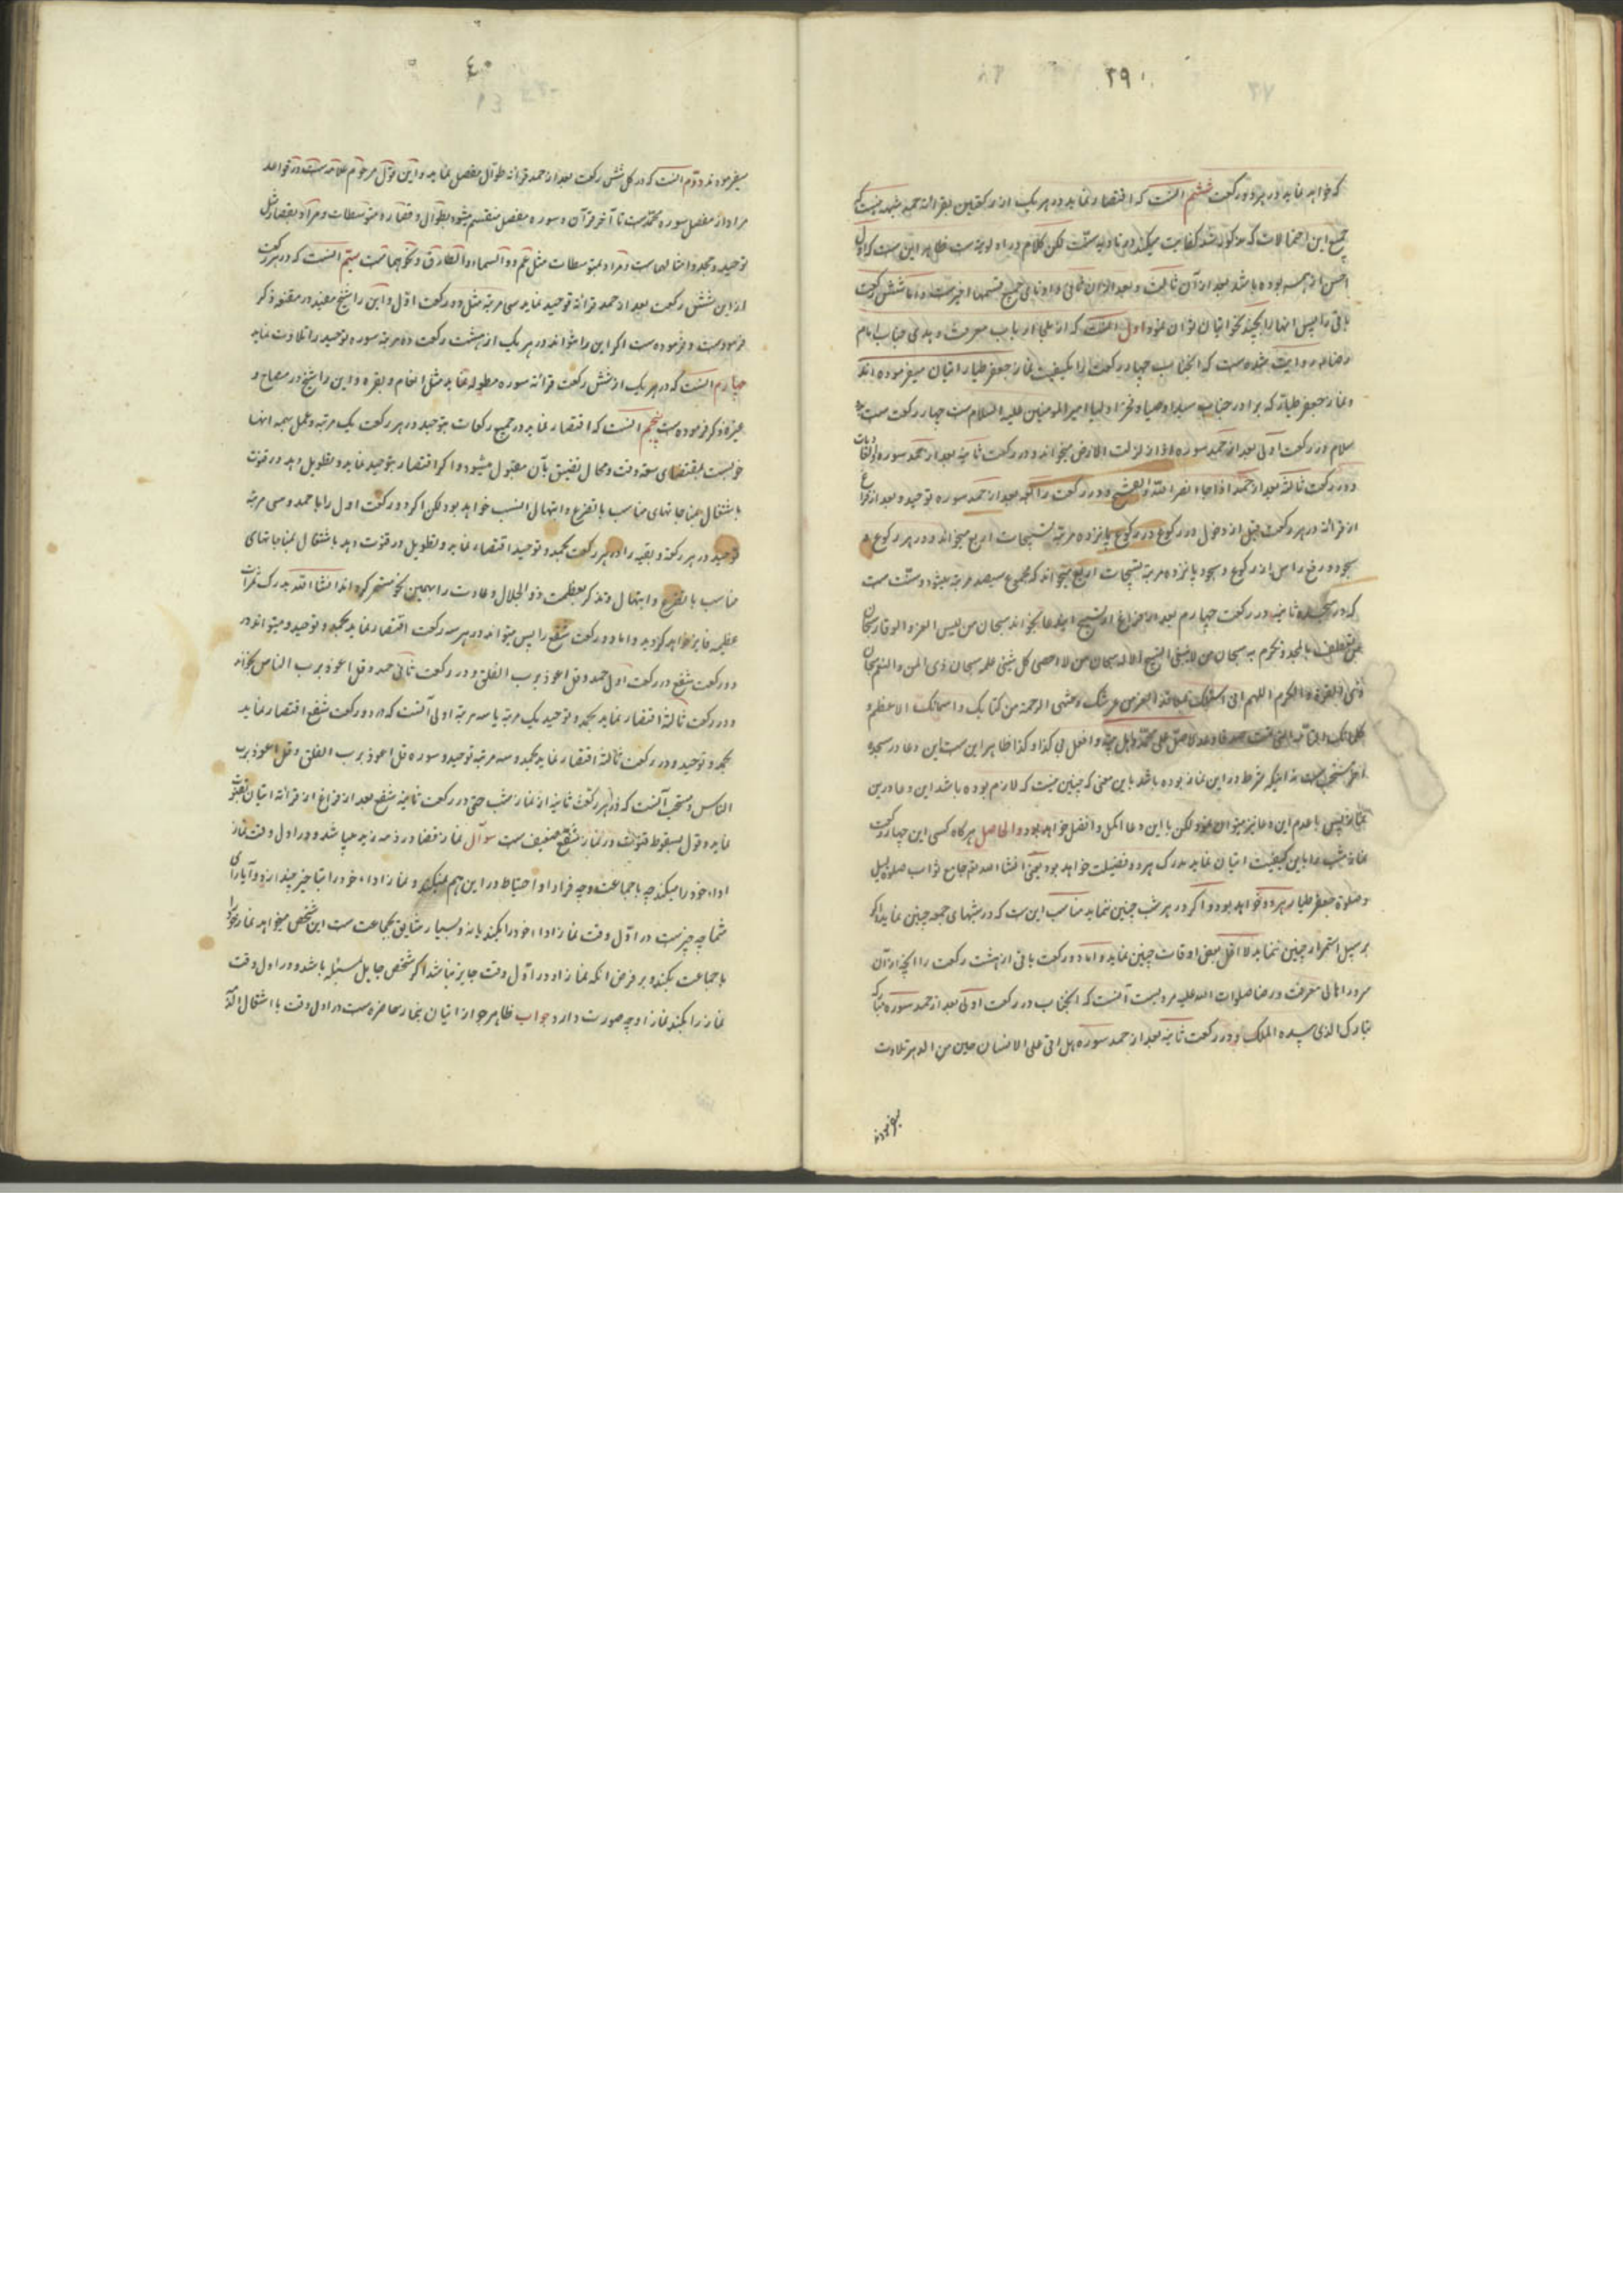 ۳۹
که خواهد نماید در هر دو رکعت ششم آنست که اقتصار نماید در هر یک از رکعتین بقرائة حمد شبهه نیست که
جمیع این احتمالات که مذکور شد کفایت میکند در تادیه سنت لکن کلام در اولویت است ظاهر این است که اول
احسن از همه بوده باشد بعد از آن ثالث و بعد از آن ثانی و ادنای جمیع قسمها اخیر است و اما شش رکعت
باقی را پس اینها را بچند نحو اتیان توان نمود اول آنست که از علی ارباب معرفت و هدی جناب امام
رضا علیه روایت شده است که آنجناب چهار رکعت را بکیفیت نماز جعفر طیار اتیان میفرموده اند
و نماز جعفر طیار که برادر جناب سید اوصیاء و فخر اولیا امیر المومنین علیه السلام است چهار رکعت است بدو
سلام در رکعت اولی بعد از حمد سوره اذا زلزلت الارض میخواند و در رکعت ثانیه بعد از حمد سوره والعادیات
و در رکعت ثالثه بعد از حمد اذا جاء نصر الله والفتح و در رکعت رابعه بعد از حمد سوره توحید و بعد از فراغ
از قرائة در هر رکعت قبل از دخول در رکوع پانزده مرتبه تسبیحات اربع میخواند و در هر رکوع و
سجود و رفع راس از رکوع و سجود ده مرتبه تسبیحات اربع میخواند که مجموع سیصد مرتبه میشود و سنت است
که در سجده ثانیه در رکعت چهارم بعد از فراغ از تسبیح این دعا بخواند سبحان من لبس العز والوقار سبحان
من تعطف بالمجد و تکرم به سبحان من لا ینبغی التسبیح الا له سبحان من لا احصی کل شیئی علمه سبحان ذی المن والنعم سبحان
ذی القدرة والکرم اللهم انی اسئلک بمعاقد العز من عرشک و منتهی الرحمة من کتابک و اسمائک الاعظم و
کلماتک التامة التی تمت صدقا و عدلا صل علی محمد و اهل بیته و افعل بی کذا و کذا ظاهر این ست این دعا در سجده
اخیر مستحب است نه اینکه شرط در این نماز بوده باشد باین معنی که چنین نیست که لازم بوده باشد این دعا در این
نماز پس با عدم این دعا نیز میتوان نمود لکن با این دعا اکمل و افضل خواهد بود و الحاصل هرگاه کسی این چهار رکعت
نماز شب را باین کیفیت اتیان نماید مدرک هر دو فضیلت خواهد بود یعنی انشاء الله جامع ثواب صلوة لیل
و صلوة جعفر طیار هر دو خواهد بود و اگر در هر شب چنین ننماید مناسب این ست که در شبهای جمعه چنین نماید و اگر
بر سبیل استمرار چنین ننماید لا اقل بعض اوقات چنین نماید و اما دو رکعت باقی از هشت رکعت را آنچه از آن
سرور اهالی معرفت و رضا صلوات الله علیه مرویست آنست که آنجناب در رکعت اولی بعد از حمد سوره مبارکه
تبارک الذی بیده الملک و در رکعت ثانیه بعد از حمد سوره هل اتی علی الانسان حین من الدهر تلاوت
میفرمودند
۴۰
میفرمودند دوم آنست که در کل شش رکعت بعد از حمد قرائة طوال مفصل نماید و این قول مرحوم علامه ست در قواعد
مراد از مفصل سوره محمد ست تا آخر قرآن و سوره مفصل منقسم میشود بطوال و قصار و متوسطات و مراد بقصار مثل
توحید و جحد و امثالهاست و مراد بمتوسطات مثل عم و والسماء والطارق و نحوهماست سیم آنست که در هر رکعت
از این شش رکعت بعد از حمد قرائة توحید نماید سی مرتبه مثل دو رکعت اول و این را شیخ مفید در مقنعه ذکر
فرموده است و فرموده ست اگر این را نتواند در هر یک از هشت رکعت ده مرتبه سوره توحید را تلاوت نماید
چهارم آنست که در هر یک از شش رکعت قرائة سوره مطوله نماید مثل انعام و بقره و این را شیخ در مصباح و
غیره ذکر فرموده ست پنجم آنست که اقتصار نماید در جمیع رکعات بتوحید در هر رکعت یک مرتبه و عمل بهمه اینها
خوبست بمقتضای سعه وقت و مجال تضییق بآن مقبول میشود و اگر اقتصار بتوحید نماید و تطویل دهد در قنوت
باشتغال بمناجاتهای مناسب با تضرع و ابتهال انسب خواهد بود لکن اگر دو رکعت اول را با حمد و سی مرتبه
توحید در هر رکعة و بقیه را در هر رکعت بحمد و توحید اقتصار نماید و تطویل در قنوت دهد باشتغال بمناجاتهای
مناسب با تضرع و ابتهال و تذکر بعظمت ذو الجلال و عادت را بهمین نحو مستمر کرداند انشاء الله بدرک ثمرات
عظیمه فایز خواهد کردید و اما دو رکعت شفع را پس میتواند در هر سه رکعت اقتصار نماید بحمد و توحید و میتواند در
دو رکعت شفع در رکعت اول حمد و قل اعوذ برب الفلق و در رکعت ثانی حمد و قل اعوذ برب الناس بخواند
و در رکعت ثالثة اقتصار نماید بحمد و توحید یک مرتبه یا سه مرتبه اولی آنست که در دو رکعت شفع اقتصار نماید
بحمد و توحید و در رکعت ثالثة اقتصار نماید بحمد و سه مرتبه توحید و سوره قل اعوذ برب الفلق و قل اعوذ برب
الناس و مستحب آنست که در هر رکعت ثانیه از نماز شب حتی در رکعت ثانیه شفع بعد از فراغ از قرائة اتیان بقنوت
نماید و قول بسقوط قنوت در نماز شفع ضعیف ست سوال نماز قضا در ذمه زید میباشد و در اول وقت نماز
اداء خود را میکند چه با جماعت و چه فرادا و احتیاط در این هم نمیکند و نماز اداء خود را بتأخیر نمیاندازد و آیا رأی
شما چه چیز ست در اول وقت نماز اداء خود را بکند یا نه و بسیار شایق بجماعت ست این شخص میخواهد نماز خود را
با جماعت بکند و بر فرض آنکه نماز او در اول وقت جایز نباشد اگر شخص جاهل مسئله باشد و در اول وقت
نماز را بکند نماز او چه صورت دارد جواب ظاهر جواز اتیان بنماز حاضره ست در اول وقت با اشتغال ذمه